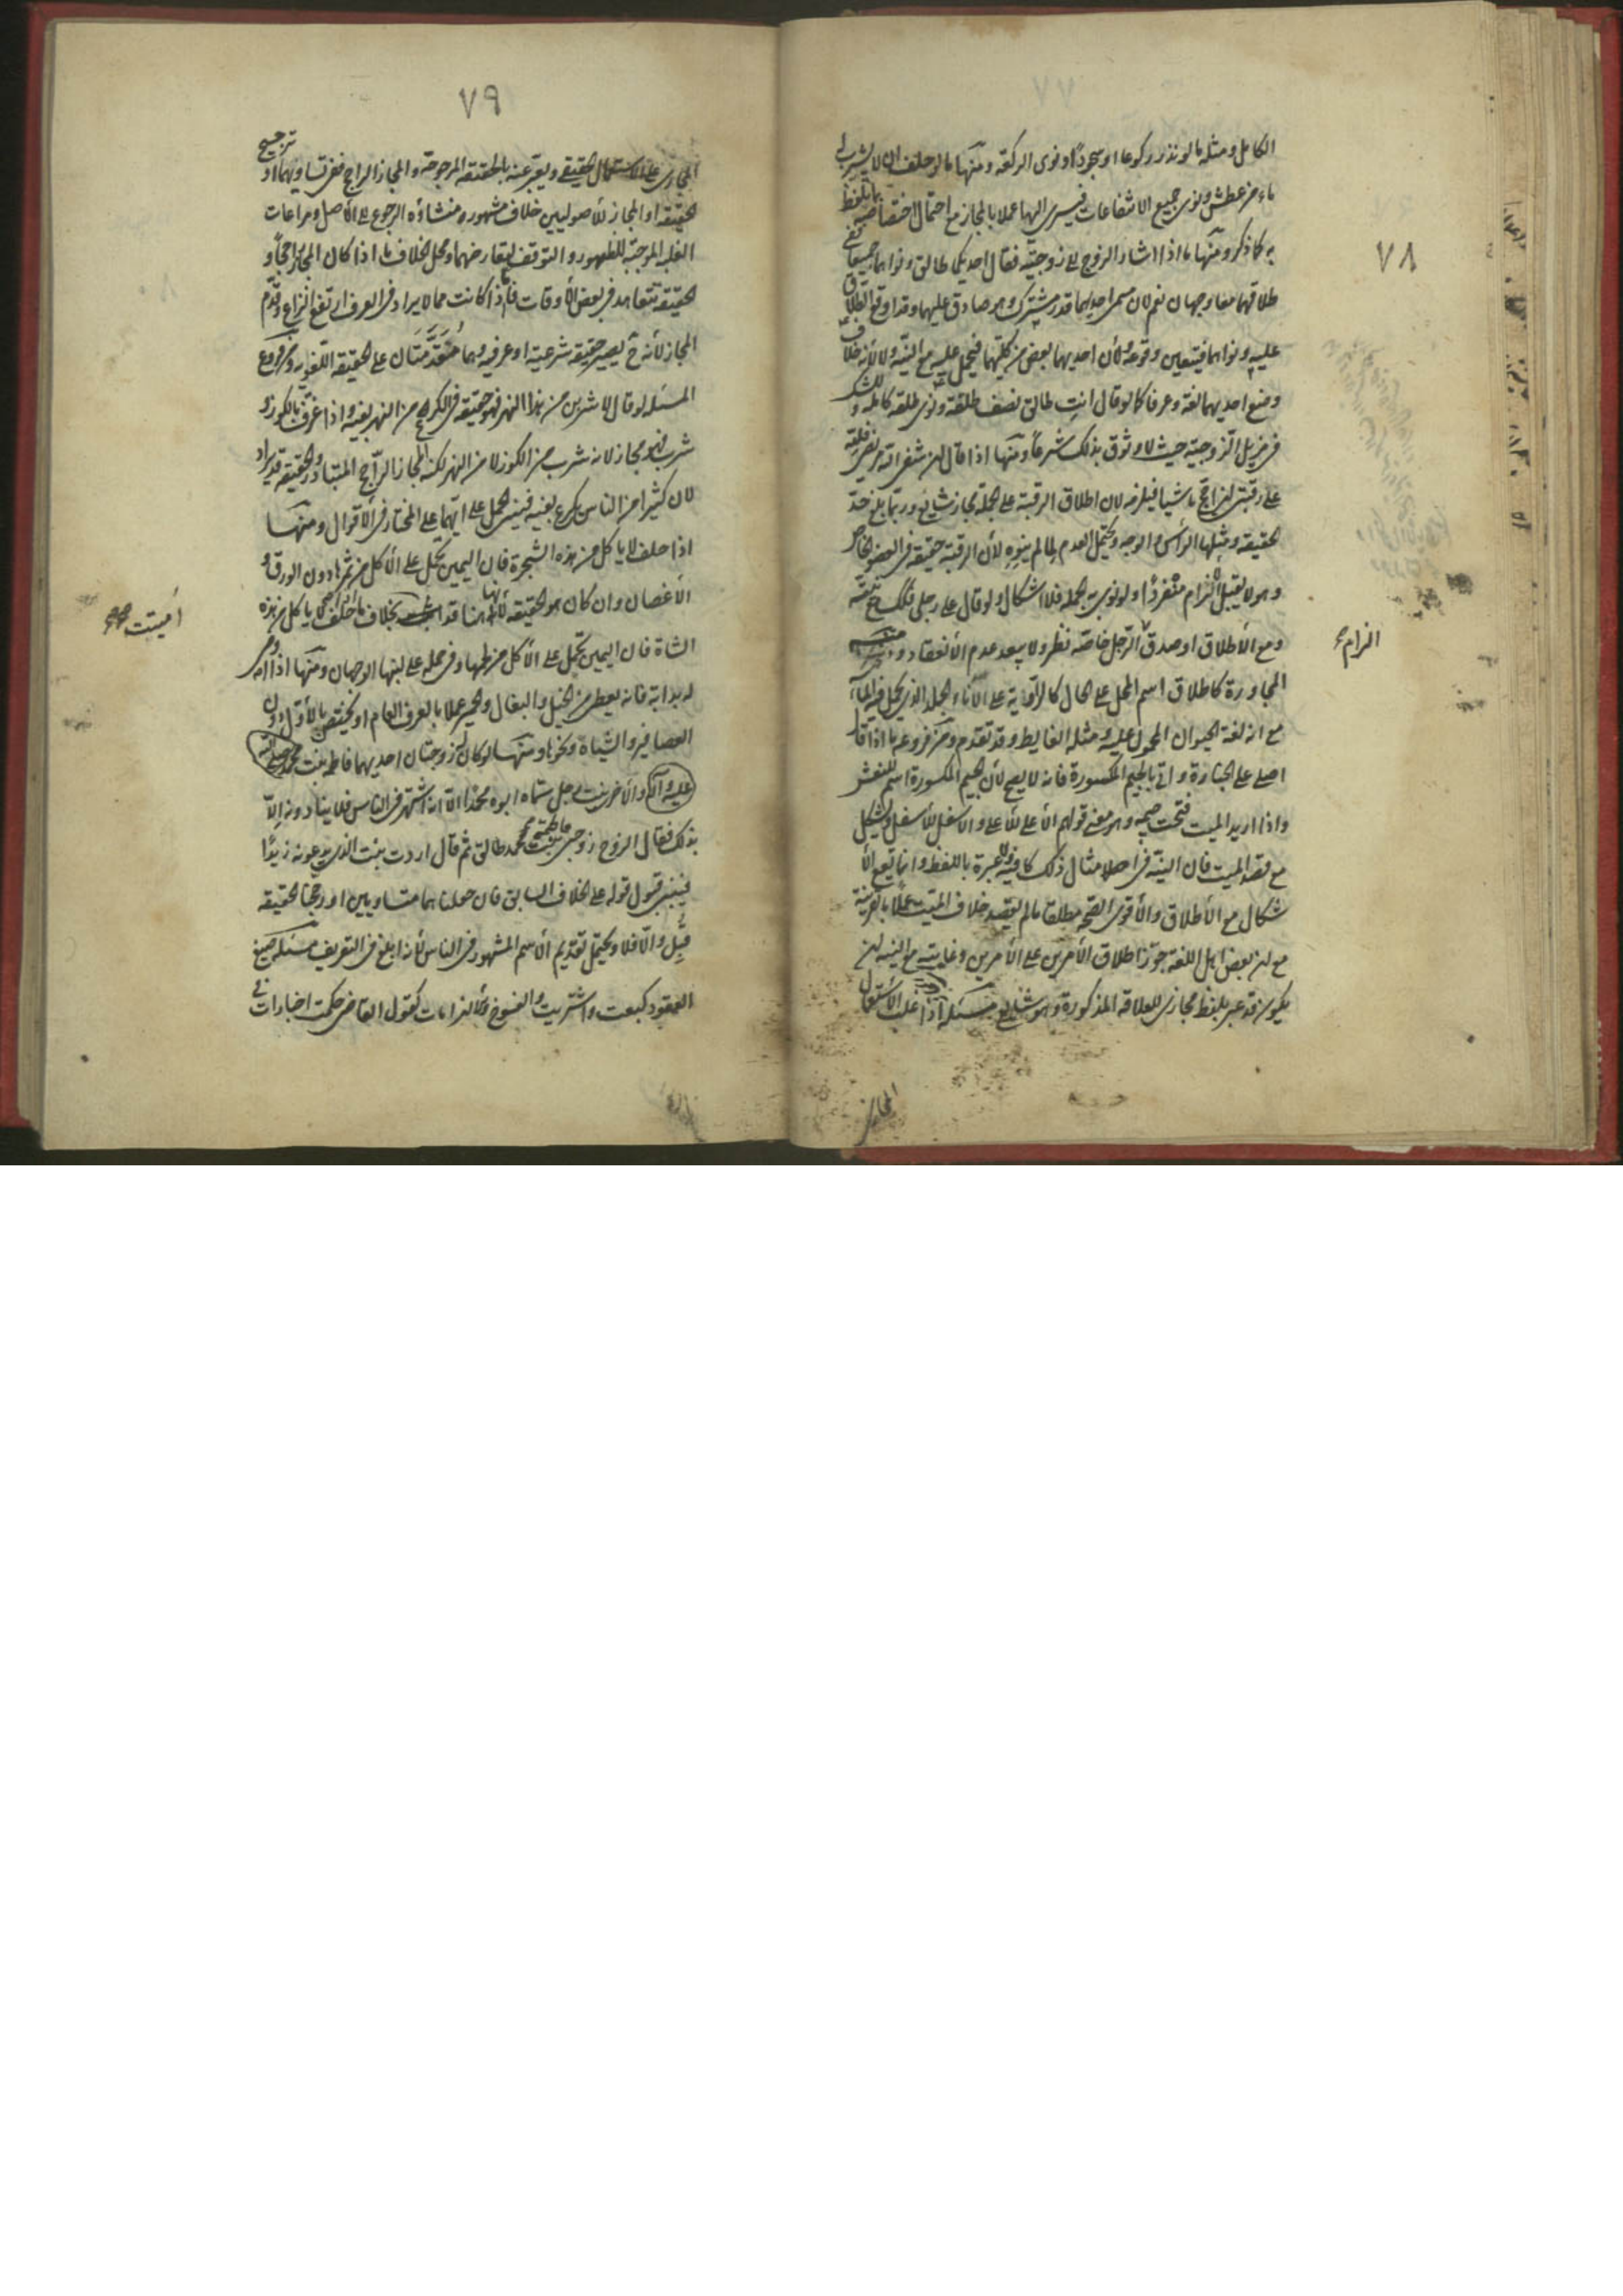 ٧٨
الكامل ومثله ما لو نذر ركوعا او سجودا ونوى الركعة ومنها ما لو حلف ان لا يشرب له
ماء من عطش ونوى جميع الانتفاعات فيسرى اليها عملا بالمجاز مع احتمال اختصاصه باللفظ
به كما ذكر ومنها ما اذا اشار الزوج الى زوجتيه فقال احديكما طالق ونواهما جميعا ففي
طلاقهما معا وجهان نعم لان مسمى احديهما قدر مشترك وهو صادق عليهما وقد اوقع الطلاق
عليه ونواهما فيتعين وقوعه ولأن احديهما بعض من كليتهما فيحمل عليه مع النية ولا لأنه خلاف
وضع احديهما لغة وعرفا كما لو قال انت طالق نصف طلقة ونوى طلقة كاملة وللشك
في مزيل الزوجية حيث لا وثوق بذلك شرعا ومنها اذا قال ان شفى الله مريضي فلله
على رقبتي ان احج ماشيا فيلزمه لان اطلاق الرقبة على الجملة مجاز شايع وربما بلغ حد
الحقيقة ومثلها الرأس والوجه ويحتمل العدم ما لم ينوه لأن الرقبة حقيقة في العضو الخاص
وهو لا يقبل التزام منفردا ولو نوى به الجملة فلا اشكال ولو قال على رجلي فكذلك مع نيته
ومع الأطلاق او صدق الرجل خاصة نظر ولا يبعد عدم الأنعقاد
التزام
المجاورة كاطلاق اسم المحل على الحال كالراوية على الأناء الجلد الذي يحمل فيه الماء
مع انه لغة الحيوان المحمول عليه ومثله الغايط وقد تقدم ومن فروعه ما اذا قال
اصلى على الجنازة واتى بالجيم المكسورة فانه لا يصح لأن الجيم المكسورة اسم للنعش
واذا اريد الميت فتحت جيمه وهو معنى قولهم الأعلى للأعلى والاسفل للأسفل ويشكل
مع قصد الميت فان النية في امثال ذلك كافية ولا عبرة باللفظ وانما تيع الأ
شكال مع الأطلاق والأقوى الصحة مطلقا ما لم يقصد خلاف الميت عملا بالقرينة
مع ان بعض اهل اللغة جوز اطلاق الأمرين على الأمرين وغايته مع النية ان
يكون قد عبر بلفظ مجازي للعلاقة المذكورة وهو شايع مسئلة اذا غلب الأستعمال
المجازي
٧٩
المجازي على الاستعمال الحقيقي ويعبر عنه بالحقيقة المرجوحة والمجاز الراجح ففي تساويهما او ترجيح
الحقيقة او المجاز للأصوليين خلاف مشهور ومنشاؤه الرجوع الى الأصل ومراعات
الغلبة الموجبة للظهور والتوقف لتعارضهما ومحل الخلاف ما اذا كان المجاز راجحا و
الحقيقة تتعاهد في بعض الأوقات فأما اذا كانت مما لا يراد في العرف ارتفع النزاع وقدم
المجاز لأنه ح يصير حقيقة شرعية او عرفية وهما متقدمتان على الحقيقة اللغوية ومن فروع
المسئلة لو قال لاشربن من هذا النهر فهو حقيقة في الكرع من النهر بفيه واذا غرف بالكوز و
شرب فهو مجاز لانه شرب من الكوز لا من النهر لكنه المجاز الراجح المتبادر والحقيقة قد يراد
لان كثيرا من الناس يكرع بفيه فينبغي الحمل على ايهما على المختار في الاقوال ومنها
اذا حلف لا ياكل من هذه الشجرة فان اليمين يحمل على الأكل من ثمرها دون الورق و
الأغصان وان كان هو الحقيقة لأنها هنا قد بخلاف ما اذا حلف لا ياكل من هذه
اميتت
الشاة فان اليمين تحمل على الأكل من لحمها وفي حمله على لبنها الوجهان ومنها اذا اوصى
له بدابة فانه يعطى من الخيل والبغال والحمير عملا بالعرف العام او يختص بالأول دون
العصافير والشياة ونحوها ومنها لو كان له زوجتان احديهما فاطمة بنت محمد صلى الله
عليه وآله والأخرى بنت رجل سماه ابوه محمدا الا انه اشتهر في الناس فلا ينادونه الا
بذلك فقال الزوج زوجتي فاطمة بنت محمد طالق ثم قال اردت بنت الذي يدعونه زيدا
فينبغي قبول قوله على الخلاف السابق فان جعلناهما متساويين او رجحنا الحقيقة
قبل والا فلا ويحتمل تقديم الأسم المشهور في الناس لأنه ابلغ في التعريف مسئلة صيغ
العقود كبعت واشتريت والفسوخ والألتزامات كقول القاضي حكمت اخبارات في